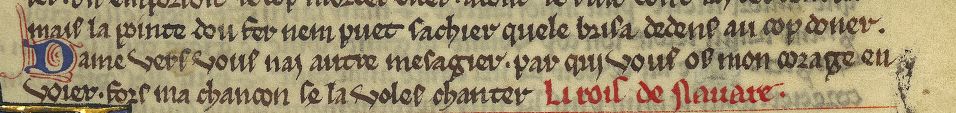 mais la pointe dou fer nem puet sachier quele brisa dedens au cop doner.
Dame vers vous nai autre mesagier. par qui vous os mon corage en
voier. fors ma chancon se la voles chanter Li rois de Navare.